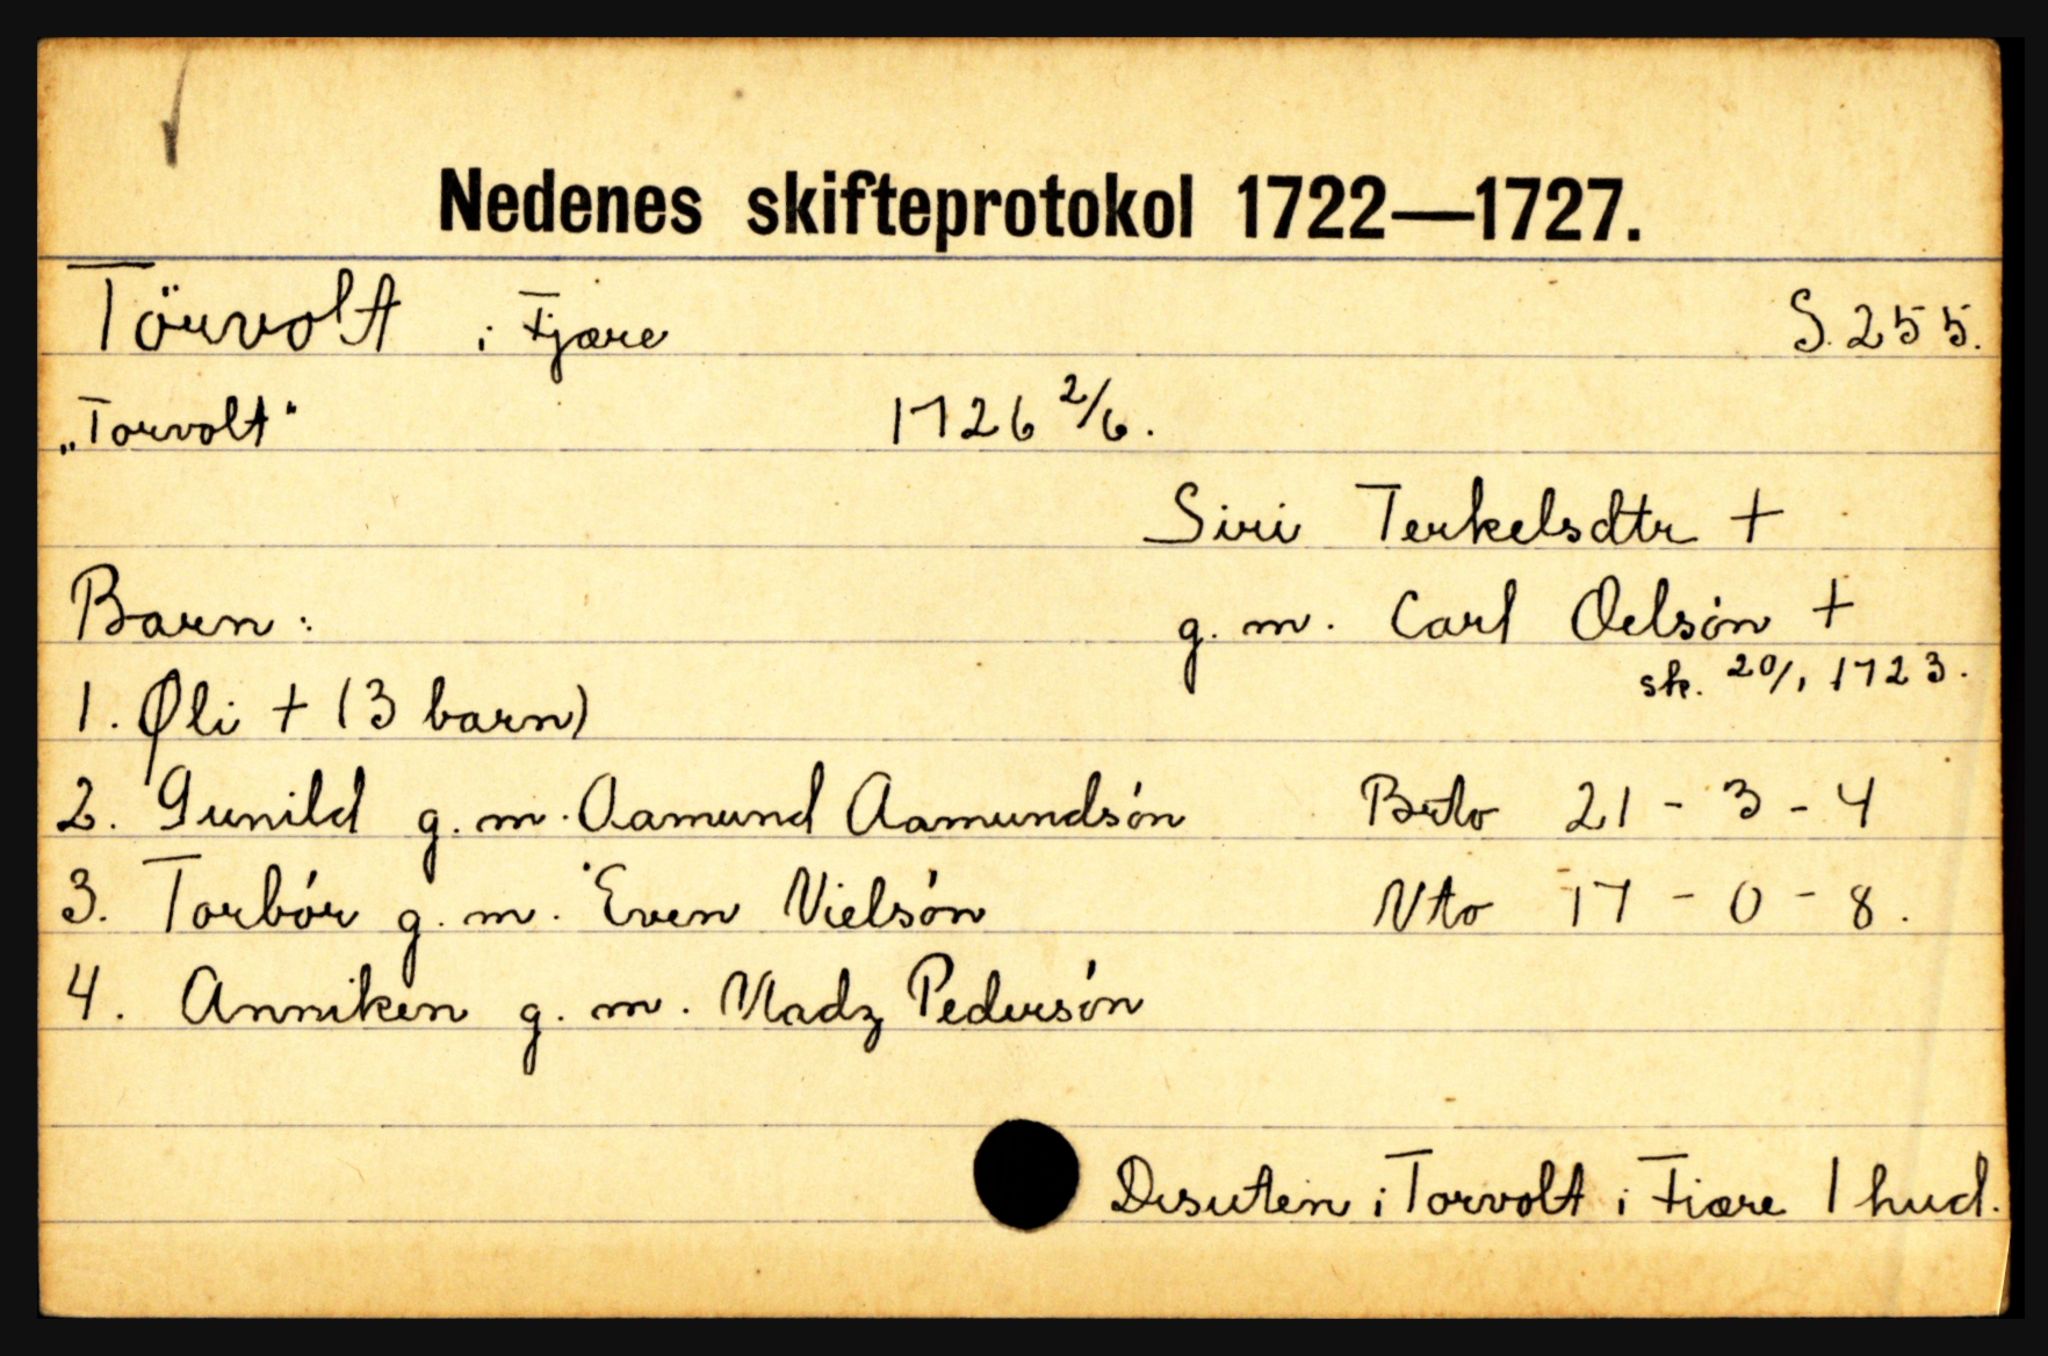 Nedenes skifteprotokol 1722—1727.
Törvolt i Fjære S. 255.
„Torvolt“ 1726 2/6.
Siri Terkelsdtr +
Barn: g. m. Carl Oelsón +
sk. 20/1 1723.
1. Øli + (3 barn)
2. Gunild g. m. Aamund Aamundsón Brto 21 - 3 - 4
3. Torbór g. m. Even Nielsón Nto 17 - 0 - 8.
4. Anniken g. m. Madz Pedersón
Desuten i Torvolt i Fiære 1 hud.